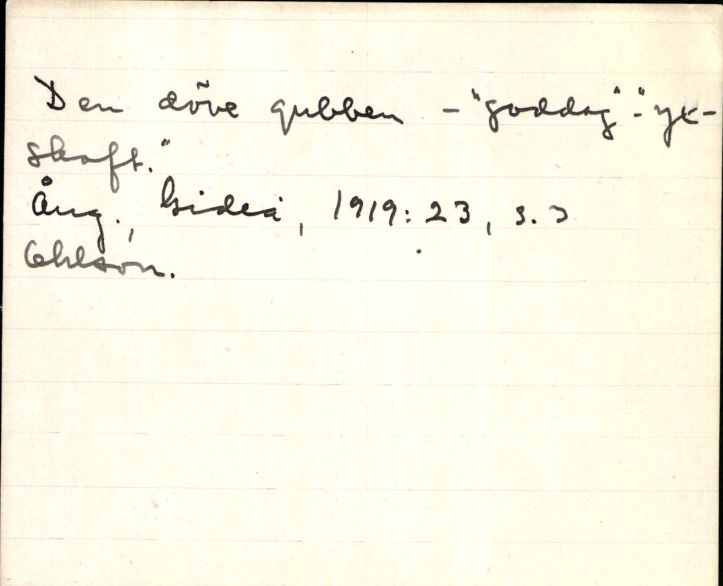 Den döve gubben – "goddag" - "yx-
skaft."
Ång., Gideå, 1919:23, s. 3
Ohlson.